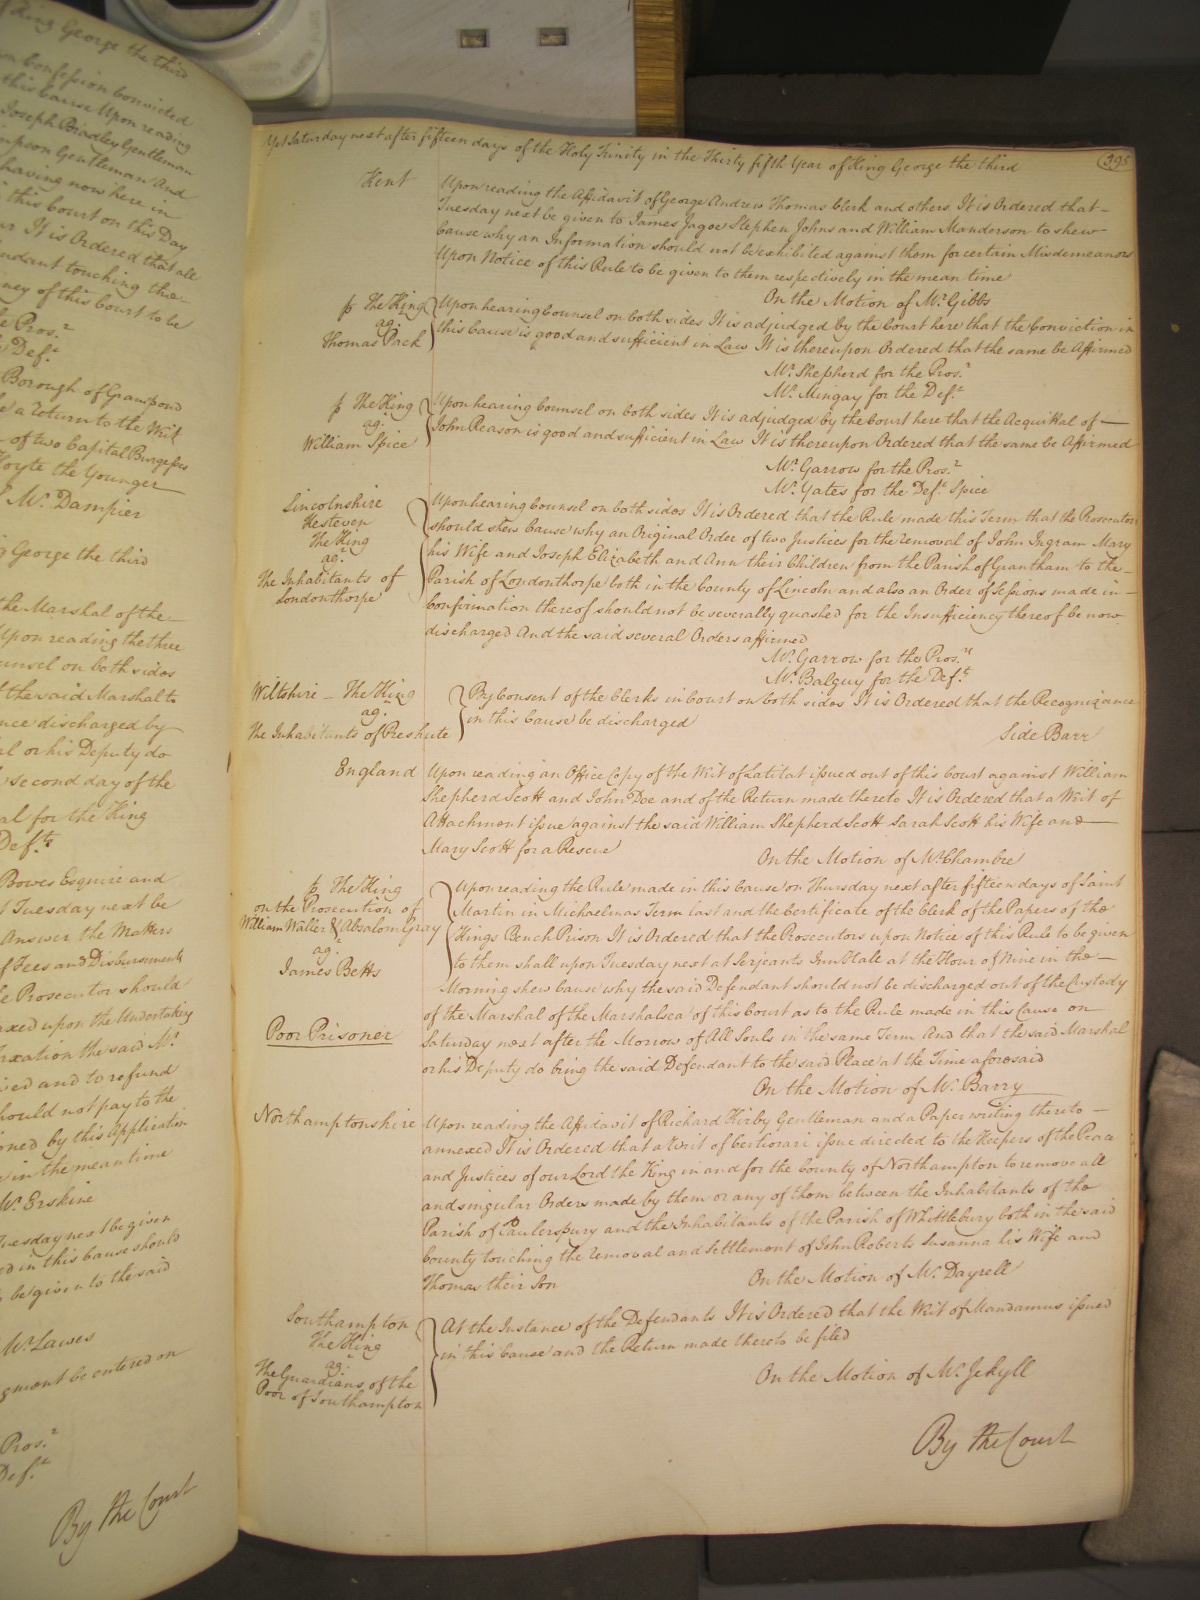 King George the third
on Confession Convicted
this Cause Upon reading
Joseph Bradley Gentleman
Simpson Gentleman And
having now here in
this Court on this Day
It is Ordered that all
touching the
ney of this Court to be
Pros.r
Def.t
Borough of Grampond
a return to the Writ
of two Capital Burgesses
Hoyte the Younger
Mr. Dampier
George the third
the Marshal of the
Upon reading the three
Counsel on both sides
the said Marshal to
discharged by
or his Deputy do
second day of the
for the King
Def.ts
Bowes Esquire and
Tuesday next be
Answer the Matters
of Fees and Disbursements
Prosecutor should
taxed upon the Undertaking
Taxation the said Mr.
and to refund
should not pay to the
by this Application
in the mean time
Mr. Erskine
Tuesday next be given
in this Cause should
be given to the said
Mr. Lawes
Judgment be entered on
Pros.r
Def.t
By the Court
Yet Saturday next after fifteen days of the Holy Trinity in the Thirty fifth Year of King George the third
395
Kent
Upon reading the Affidavit of George Andrew Thomas Clerk and others It is Ordered that
Tuesday next be given to James Jagoe Stephen Johns and William Manderson to shew
Cause why an Information should not be exhibited against them for certain Misdemeanors
Upon Notice of this Rule to be given to them respectively in the mean time
On the Motion of Mr. Gibbs
The King
ag.t
Thomas Pack
Upon hearing Counsel on both sides It is adjudged by the Court here that the Conviction in
this Cause is good and sufficient in Law It is thereupon Ordered that the same be Affirmed
Mr. Shepherd for the Pros.r
Mr. Mingay for the Def.t
The King
ag.t
William Spice
Upon hearing Counsel on both sides It is adjudged by the Court here that the Acquittal of
John Reason is good and sufficient in Law It is thereupon Ordered that the same be Affirmed
Mr. Garrow for the Pros.r
Mr. Yates for the Def.t Spice
Lincolnshire
Kesteven
The King
ag.t
The Inhabitants of
Londonthorpe
Upon hearing Counsel on both sides It is Ordered that the Rule made this Term that the Prosecutors
should shew Cause why an Original Order of two Justices for the removal of John Ingram Mary
his Wife and Joseph Elizabeth and Ann their Children from the Parish of Grantham to the
Parish of Londonthorpe both in the County of Lincoln and also an Order of Sessions made in
Confirmation thereof should not be severally quashed for the Insufficiency thereof be now
discharged And the said several Orders affirmed
Mr. Garrow for the Pros.rs
Mr. Balguy for the Def.ts
Wiltshire - The King
ag.t
The Inhabitants of Preshute
By Consent of the Clerks in Court on both sides It is Ordered that the Recognizance
in this Cause be discharged
Side Barr
England
Upon reading an Office Copy of the Writ of Latitat issued out of this Court against William
Shepherd Scott and John Doe and of the Return made thereto It is Ordered that a Writ of
Attachment issue against the said William Shepherd Scott Sarah Scott his Wife and
Mary Scott for a Rescue
On the Motion of Mr. Chambre
The King
on the Prosecution of
William Waller & Absalom Gray
ag.t
James Betts
Poor Prisoner
Upon reading the Rule made in this Cause on Thursday next after fifteen days of Saint
Martin in Michaelmas Term last and the Certificate of the Clerk of the Papers of the
Kings Bench Prison It is Ordered that the Prosecutors upon Notice of this Rule to be given
to them shall upon Tuesday next at Serjeants Inn Hale at the Hour of Nine in the
Morning shew Cause why the said Defendant should not be discharged out of the Custody
of the Marshal of the Marshalsea of this Court as to the Rule made in this Cause on
Saturday next after the Morrow of All Souls in the same Term And that the said Marshal
or his Deputy do bring the said Defendant to the said Place at the Time aforesaid
On the Motion of Mr. Barry
Northamptonshire
Upon reading the Affidavit of Richard Kirby Gentleman and a Paper writing thereto
annexed It is Ordered that a Writ of Certiorari issue directed to the Keepers of the Peace
and Justices of our Lord the King in and for the County of Northampton to remove all
and singular Orders made by them or any of them between the Inhabitants of the
Parish of Paulerspury and the Inhabitants of the Parish of Whittlebury both in the said
County touching the removal and Settlement of John Roberts Susanna his Wife and
Thomas their Son
On the Motion of Mr. Dayrell
Southampton
The King
ag.t
The Guardians of the
Poor of Southampton
At the Instance of the Defendants It is Ordered that the Writ of Mandamus issued
in this Cause and the Return made thereto be filed
On the Motion of Mr. Jekyll
By the Court